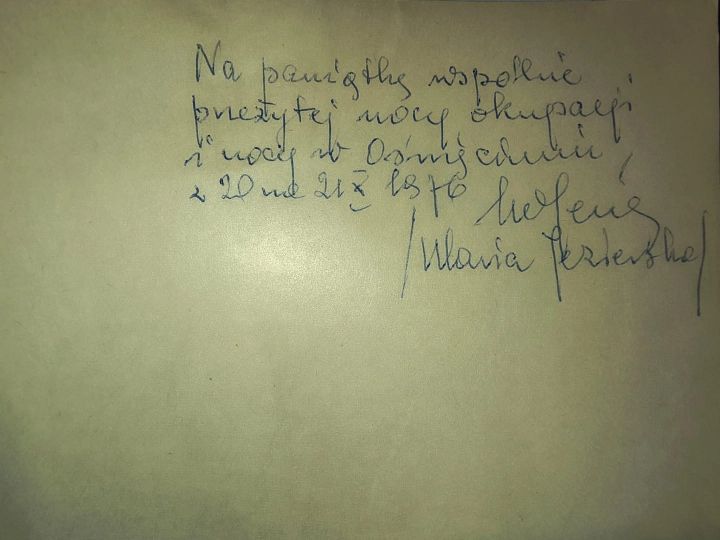 Na pamiątkę wspólnie
przeżytej nocy okupacji
i nocy w Oświęcimiu,
z 20 na 21 X 1976
/Maria Jezierska/